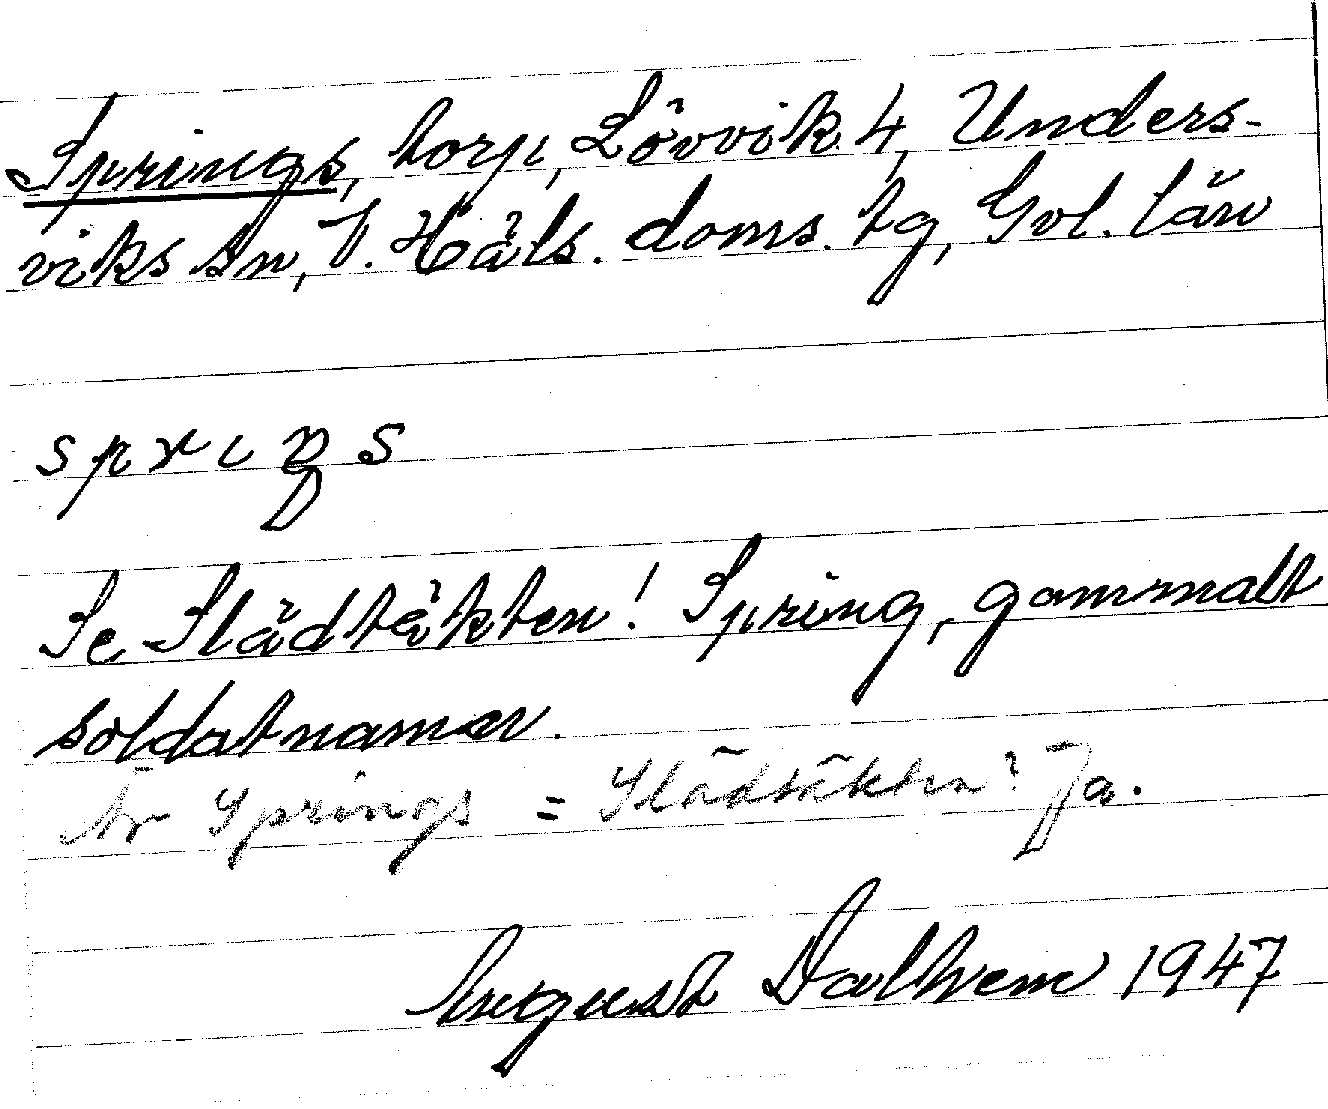 Springs, torp, Lövvik 4, Unders-
viks sn, V. Häls. doms. tg, Gvl. län
sprıŋs
Se Slädtäkten! Spring, gammalt
soldatnamn.
Är Springs = Slädtäkten? Ja.
August Dalhem 1947